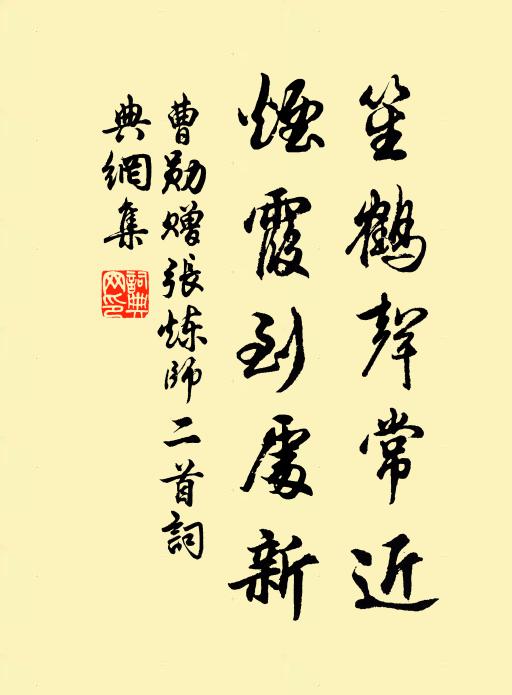 笙鶴聲常近
煙霞到處新
曹勛贈張炼師二首詞
典網集
詞典網印